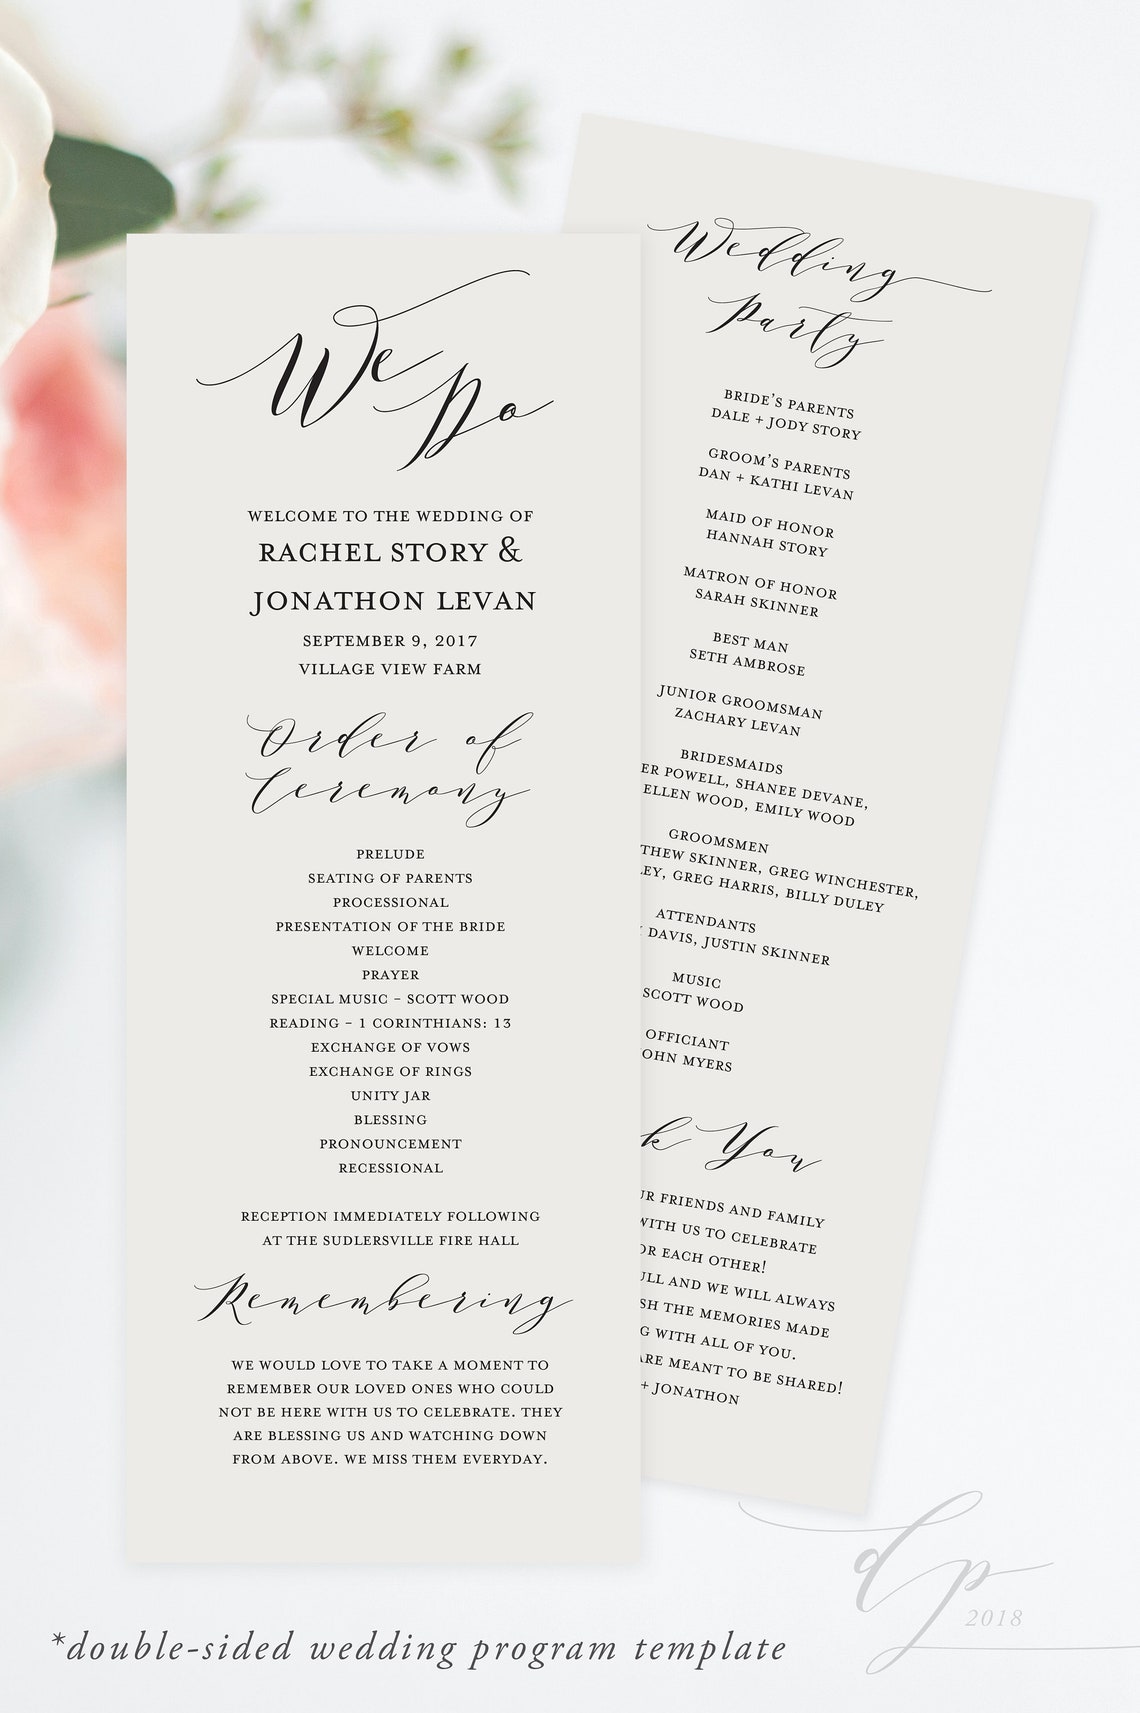 We
Do
WELCOME TO THE WEDDING OF
RACHEL STORY &
JONATHON LEVAN
SEPTEMBER 9, 2017
VILLAGE VIEW FARM
Order of
Ceremony
PRELUDE
SEATING OF PARENTS
PROCESSIONAL
PRESENTATION OF THE BRIDE
WELCOME
PRAYER
SPECIAL MUSIC – SCOTT WOOD
READING – 1 CORINTHIANS: 13
EXCHANGE OF VOWS
EXCHANGE OF RINGS
UNITY JAR
BLESSING
PRONOUNCEMENT
RECESSIONAL
RECEPTION IMMEDIATELY FOLLOWING
AT THE SUDLERSVILLE FIRE HALL
Remembering
WE WOULD LOVE TO TAKE A MOMENT TO
REMEMBER OUR LOVED ONES WHO COULD
NOT BE HERE WITH US TO CELEBRATE. THEY
ARE BLESSING US AND WATCHING DOWN
FROM ABOVE. WE MISS THEM EVERYDAY.
Wedding
Party
BRIDE'S PARENTS
DALE + JODY STORY
GROOM'S PARENTS
DAN + KATHI LEVAN
MAID OF HONOR
HANNAH STORY
MATRON OF HONOR
SARAH SKINNER
BEST MAN
SETH AMBROSE
JUNIOR GROOMSMAN
ZACHARY LEVAN
BRIDESMAIDS
POWELL, SHANEE DEVANE,
ELLEN WOOD, EMILY WOOD
GROOMSMEN
SKINNER, GREG WINCHESTER,
GREG HARRIS, BILLY DULEY
ATTENDANTS
DAVIS, JUSTIN SKINNER
MUSIC
SCOTT WOOD
OFFICIANT
MYERS
You
FRIENDS AND FAMILY
WITH US TO CELEBRATE
EACH OTHER!
AND WE WILL ALWAYS
THE MEMORIES MADE
WITH ALL OF YOU.
ARE MEANT TO BE SHARED!
+ JONATHON
dp
2018
*double-sided wedding program template